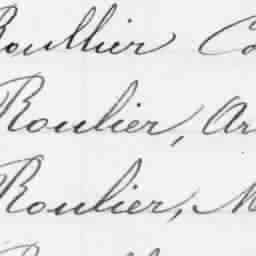 Roullier Co
Roulier, Ar
Roulier, M